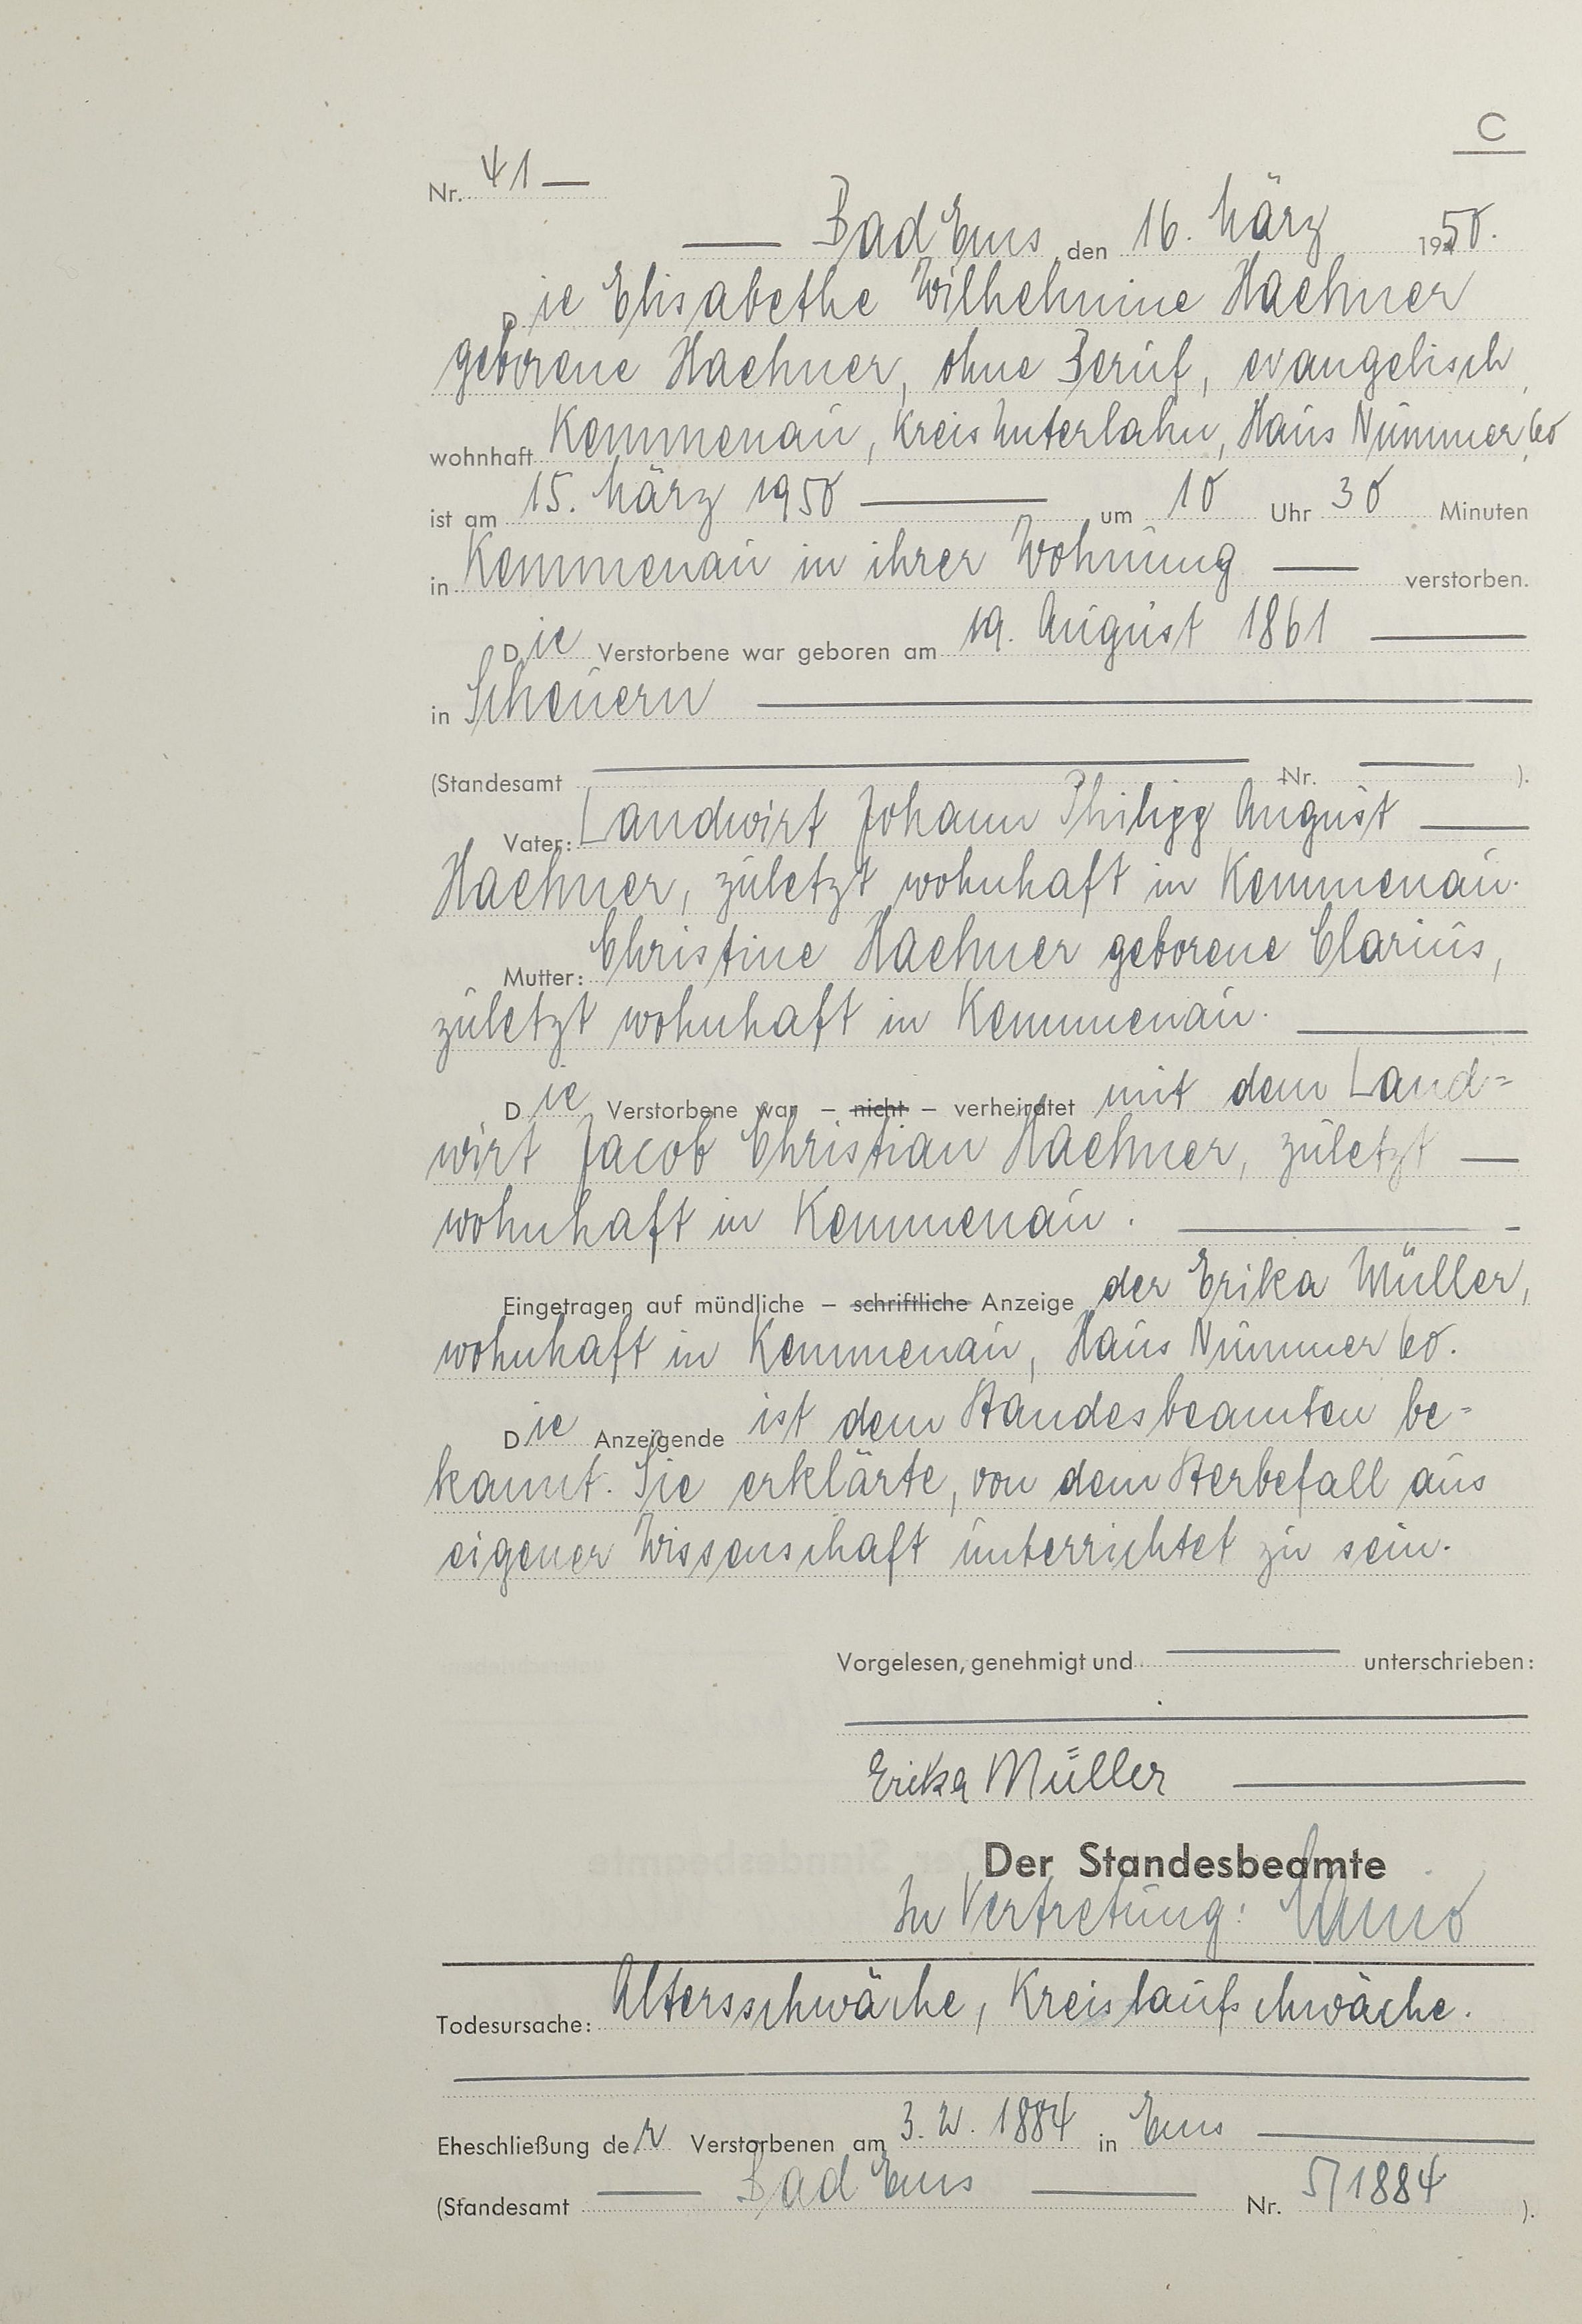 C
Nr. 41 —
— Bad Ems den 16. März 1950.
Die Elisabethe Wilhelmine Haehner
geborene Haehner, ohne Beruf, evangelisch,
wohnhaft Kemmenau, Kreis Unterlahn, Haus Nummer 60,
ist am 15. März 1950 — um 10 Uhr 30 Minuten
in Kemmenau in ihrer Wohnung — verstorben.
Die Verstorbene war geboren am 19. August 1861 —
in Scheuern —
(Standesamt — Nr. — ).
Vater: Landwirt Johann Philipp August —
Haehner, zuletzt wohnhaft in Kemmenau.
Mutter: Christine Haehner geborene Clarius,
zuletzt wohnhaft in Kemmenau. —
Die Verstorbene war – nicht – verheiratet mit dem Land=
wirt Jacob Christian Haehner, zuletzt —
wohnhaft in Kemmenau. —
Eingetragen auf mündliche – schriftliche Anzeige der Erika Müller,
wohnhaft in Kemmenau, Haus Nummer 60.
Die Anzeigende ist dem Standesbeamten be=
kannt. Sie erklärte, von dem Sterbefall aus
eigener Wissenschaft unterrichtet zu sein.
Vorgelesen, genehmigt und — unterschrieben:
Erika Müller —
Der Standesbeamte
In Vertretung:
Todesursache: Altersschwäche, Kreislaufschwäche.
Eheschließung der Verstorbenen am 3. 2. 1884 in Ems —
(Standesamt — Bad Ems — Nr. 5/1884 ).